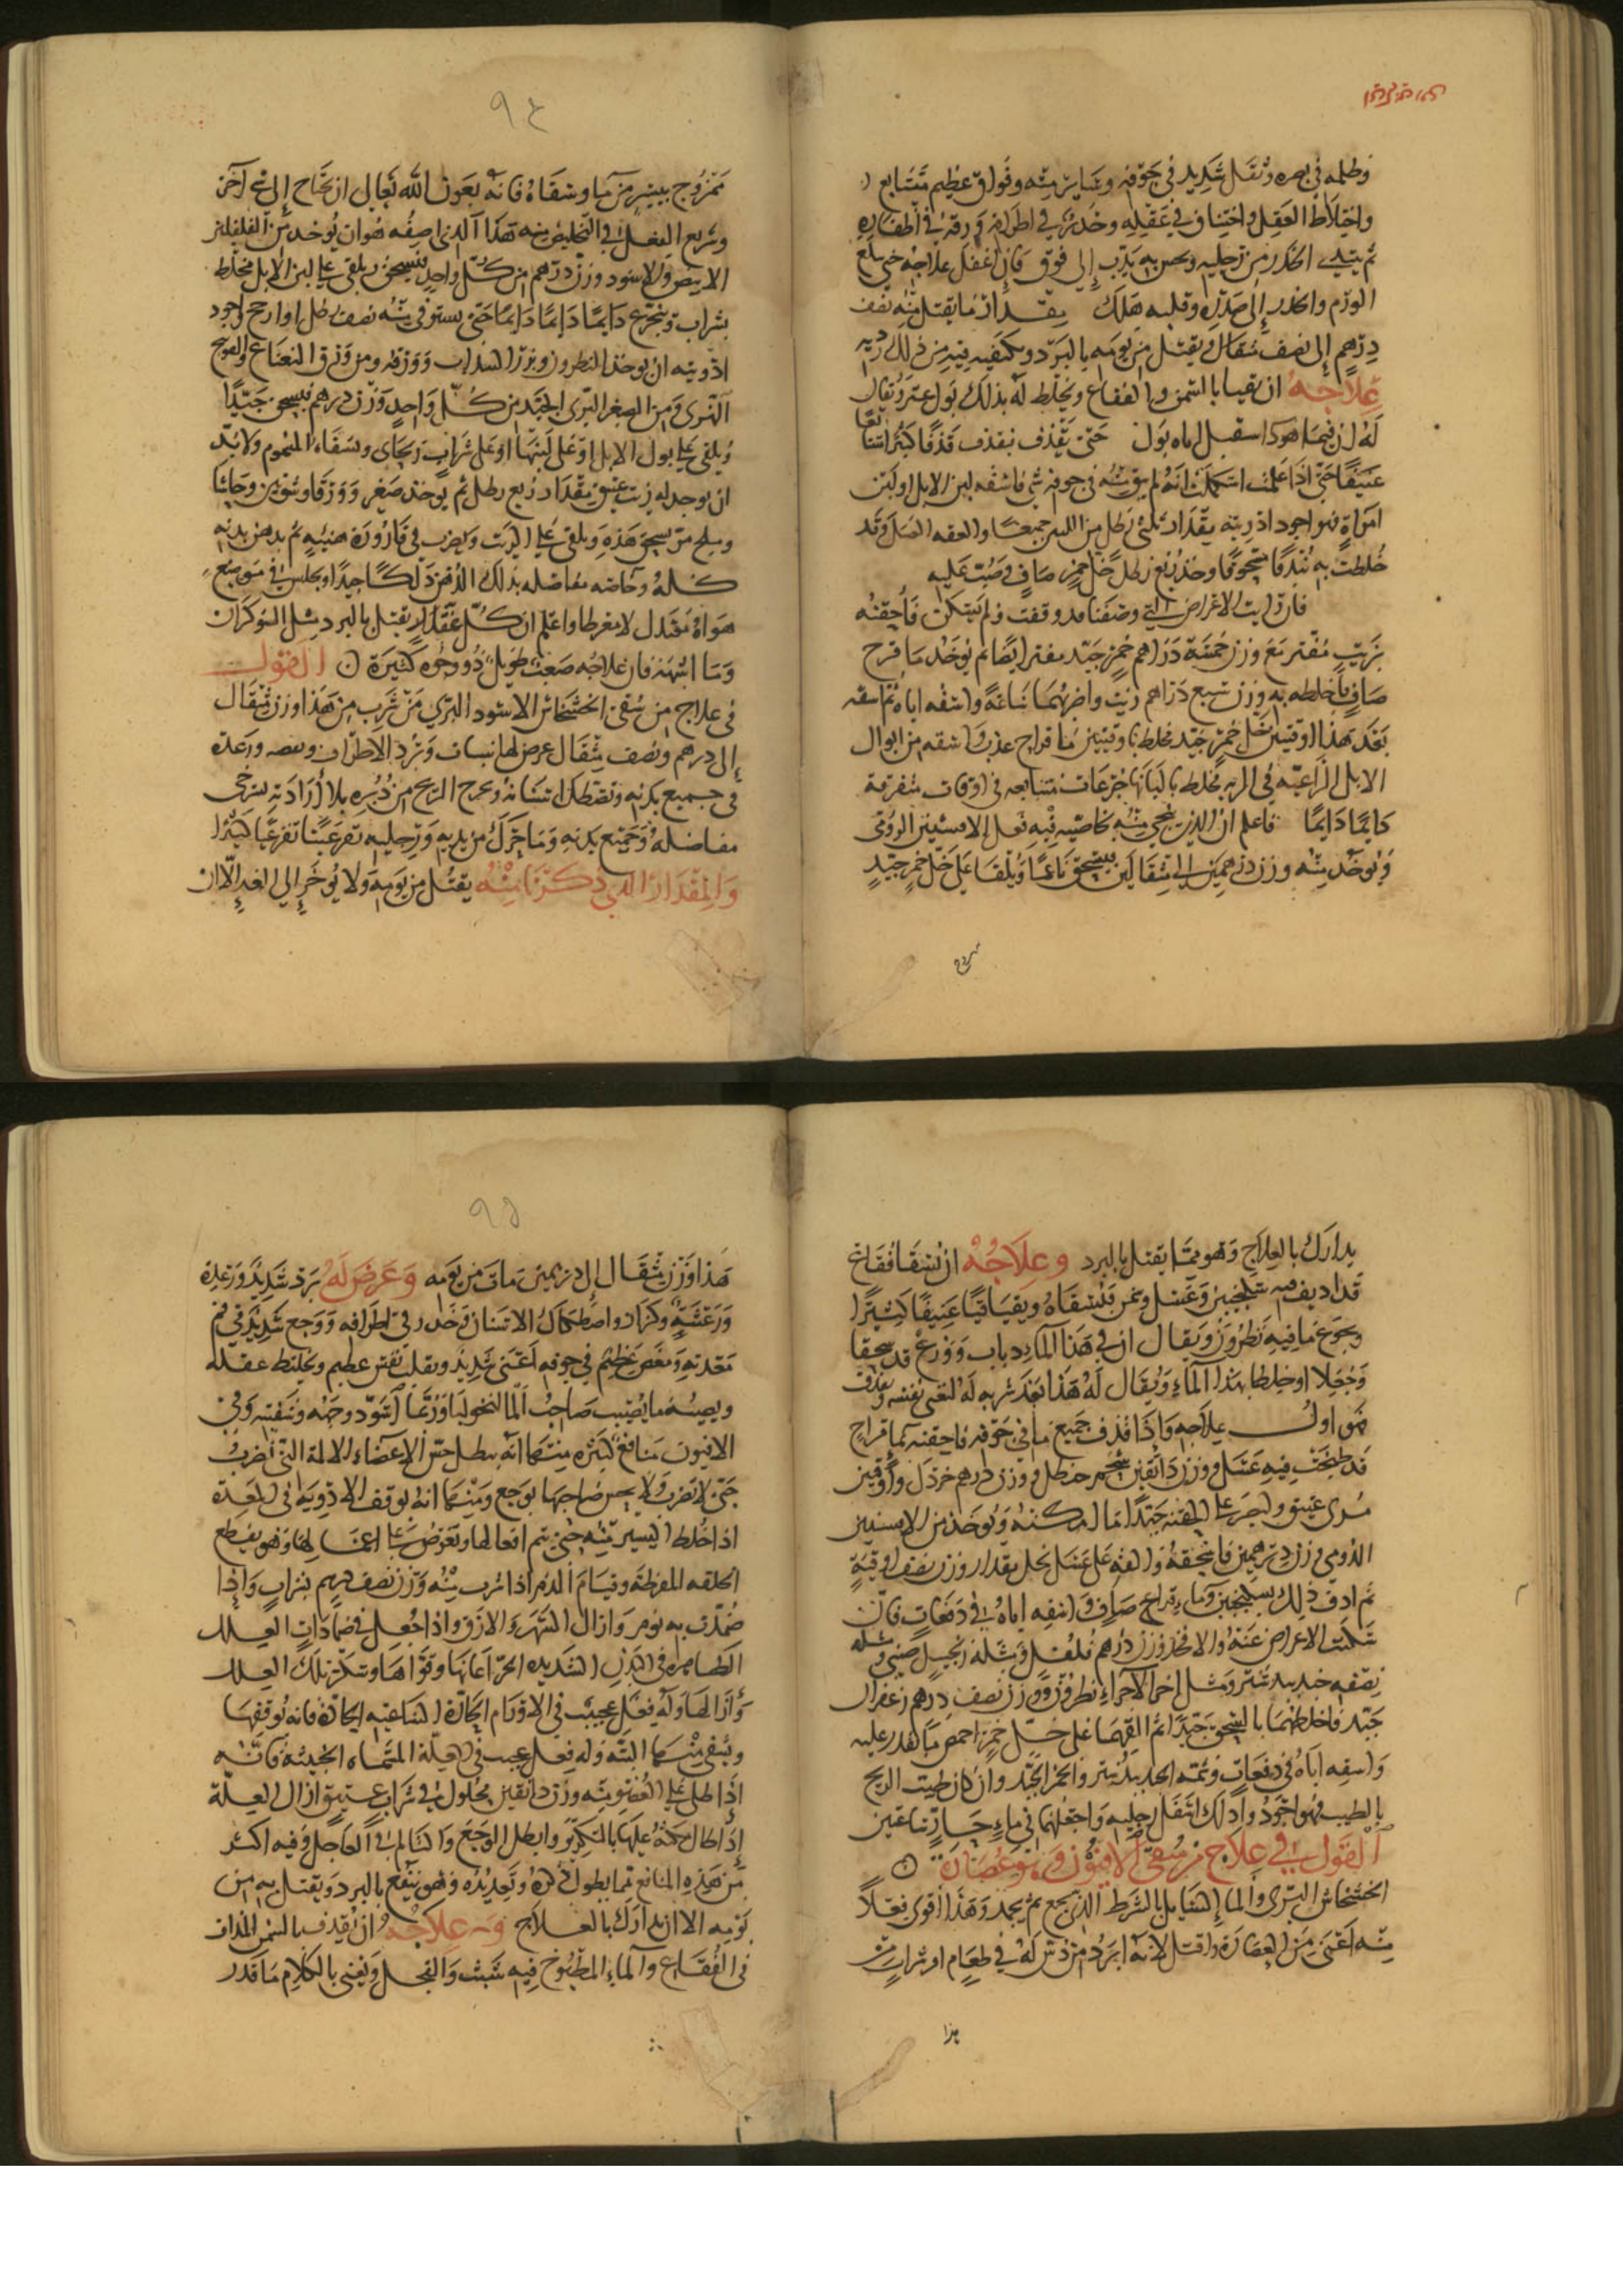 وظلمه في بصره وثقل شديد في جوفه وغيار منه وفواق عظيم متتابع
واختلاط العقل واختناق في عقله وخدر في اطرافه وزرقة في اظفاره
ثم يبتدي الخدر من رجليه ويحس به يدب إلى فوق فان اغفل علاجه حتى بلغ
الورم والخدر إلى صدره وقلبه هلك مقدار ما يقتل منه نصف
درهم إلى نصف مثقال ويقتل من يومه بالبرد ويكفيه فيه من ذلك
علاجه ان يقيا بالسمن والفقاع ويخلط له بذلك بول عنز ويقال
له حتى يقذف فيقذف قذفا كثيرا
عنيفا حتى اذا علمت انه لم يبق منه في جوفه شي فاسقه لبن الابل او لبن
امراة فهو اجود ادويته مقدار ثلثي رطل من اللبن جميعا والعقه العسل وقد
خلطت به بندقا مسحوقا وخذ ربع رطل خل خمر صاف وصب عليه
فان رايت الاعراض التي وصفنا قد وقفت ولم تسكن فاحقنه
بزيت مفتر مع وزن خمسة دراهم خمر جيد مفتر ايضا ثم يوخذ ما قرح
صاف فاخلطه به وزن سبع دراهم زيت واضربهما ساعة واسقه اياه ثم اسقه
بعد هذا اوقيتين خل خمر جيد مخلط باوقيتين ما قراح عذب واسقه من ابوال
الابل الراعية في البر مخلط بالبانها جرعات متتابعه في اوقات متفرقة
دايما دايما فاعلم ان الذي ينجي منه بخاصيه فيه فعل الافسنتين الرومي
ويوخذ منه وزن درهمين الى مثقالين فيسحق ناعما ويلقا على خل خمر جيد
٩٤
ممزوج بيسير من ما ويسقاه فانه بعون الله تعالى ان يحتاج إلى شي آخر
وسريع الفعل في التخليص منه هذا الذي اصفه هو ان يوخذ من الفلفلين
الابيض والاسود وزن درهم من كل واحد فيسحق ويلقى على لبن الابل مخلط
بشراب ويتجرع دايما دايما دايما حتى يستوفي منه نصف رطل او ارجح واجود
ادويته ان يوخذ النطرون وبزر السداب وورقه ومن ورق النعناع والفوتنج
النهري ومن الصعتر البري الجيد من كل واحد وزن درهم فيسحق جيدا
ويلقى على بول الابل او على لبنها او على شراب ريحاني ويسقاه المسموم ولا بد
ان يوجد له زيت عتيق مقدار ربع رطل ثم يوخذ صعتر
وملح من يسحق هذه ويلقى على الزيت ويضرب في قارورة هنيهه ثم يدهن بدنه
كله وخاصه مفاصله بذلك الدهن دلكا جيدا ويجلس في موضع
هواه معتدل لا مفرطا واعلم ان كل عقار يقتل بالبرد مثل الشوكران
وما اشبهه فان علاجه صعب طويل ذو وجوه كثيرة القول
في علاج من سقي الخشخاش الاسود البري من شرب من هذا وزن مثقال
إلى درهم ونصف مثقال عرض لها نسيان وبرد الاطراف ورعدة
في جميع بدنه وتصطك اسنانه ويخرج الريح من دبره بلا ارادته تسترخي
مفاصله وجميع بدنه وما تحرك من يديه ورجليه
والمقدار الذي ذكرنا منه يقتل من يومه ولا يوخر إلى الغد إلا ان
يدارك بالعلاج وهو مما يقتل بالبرد وعلاجه ان يسقا فقاع
قد اديف فيه سكنجبين وعسل وسمن فيسقاه ويقيا قيا عنيفا كثيرا
ويجرع ما فيه نطرون ويقال ان في هذا الماء ذباب ووزغ قد سحقا
وجعلا او خلطا بهذا الماء ويقال له هذا بعد شربه له لتغثي نفسه ويقذف
فهو اول علاجه واذا قذف جميع ما في جوفه فاحقنه بما قراح
قد طبخت فيه عسل ووزن دانقين شحم حنظل ووزن درهم خردل واوقيتين
مري عتيق وليجر على الحقنه جيدا ما امكنه ويوخذ من الافسنتين
الرومي وزن درهمين فاسحقه والقه على عسل نحل مقدار وزن نصف اوقية
ثم ادف ذلك بسكنجبين وماء قراح صاف واسقه اياه في دفعات فان
سكنت الاعراض عنه والا فخذ وزن درهم فلفل ومثله زنجبيل صيني ومثله
نصفه جندبيدستر ومثل آخر الاجزاء نطرون ووزن نصف درهم زعفران
جيد فاخلطهما بالسحق جيدا ثم القهما على خل خمر احمض ما تقدر عليه
واسقه اياه في دفعات وشمه الجندبيدستر والخمر الجيد وان كان طيب الريح
بالطيب فهو اجود وادلك اسفل رجليه واجعلهما في ماء حار ساعتين
القول في علاج من سقي الافيون وهو عصارة
الخشخاش البري والما السايل بالشرط الذي يجمع ثم يجمد وهذا اقوى فعلا
منه اعني من العصارة واقتل لانه ابرد من دس له في طعام او شراب من
هذا
٩٥
هذا وزن مثقال إلى درهمين مات من يومه وعرض له برد شديد ورعدة
ورعشة وكزاز واصطكاك الاسنان وخدر في اطرافه ووجع شديد في فم
معدته ومغص عظيم في جوفه اعني شديد ويقلب نفس عظيم ويختلط عقله
ويصيبه ما يصيب صاحب المالنخوليا وربما اسود وجهه وشفتيه وفي
الافيون منافع كثيره منها انه يبطل حس الاعضاء الالمة التي تضرب
حتى لا تضرب ولا يحس صاحبها بوجع ومنها انه يوقف الادوية في المعدة
اذا خلط اليسير منه حتى يتم افعالها وتعرض على اعمالها وهو يقطع
الخلفه المفرطة وقيام الدم اذا شرب منه وزن نصف درهم بشراب واذا
ضمدت به نوم وازال السهر والارق واذا جعل في ضمادات العلل
الظاهره في البدن الشديده الحر اعانها وقواها وسكن تلك العلل
وازالها وله فعل عجيب في الاورام الحارة الساعيه الحادة فانه يوقفها
ويشفي منها البته وله فعل عجيب في العلة المسماه الخبيثة فانه
اذا طلي على العضو منه وزن دانقين محلول في شراب عتيق ازال العلة
اذا طال حكه عليها بالتكرير وابطل الوجع والتالم في العاجل وفيه اكثر
من هذه المنافع مما يطول ذكره وتعديده وهو ينفع بالبرد ويقتل به من
يومه الا ان يدارك بالعلاج وعلاجه ان يقذف بالسمن المذاف
في الفقاع والماء المطبوخ فيه شبت والفجل ويغثى بالكلام ما قدر